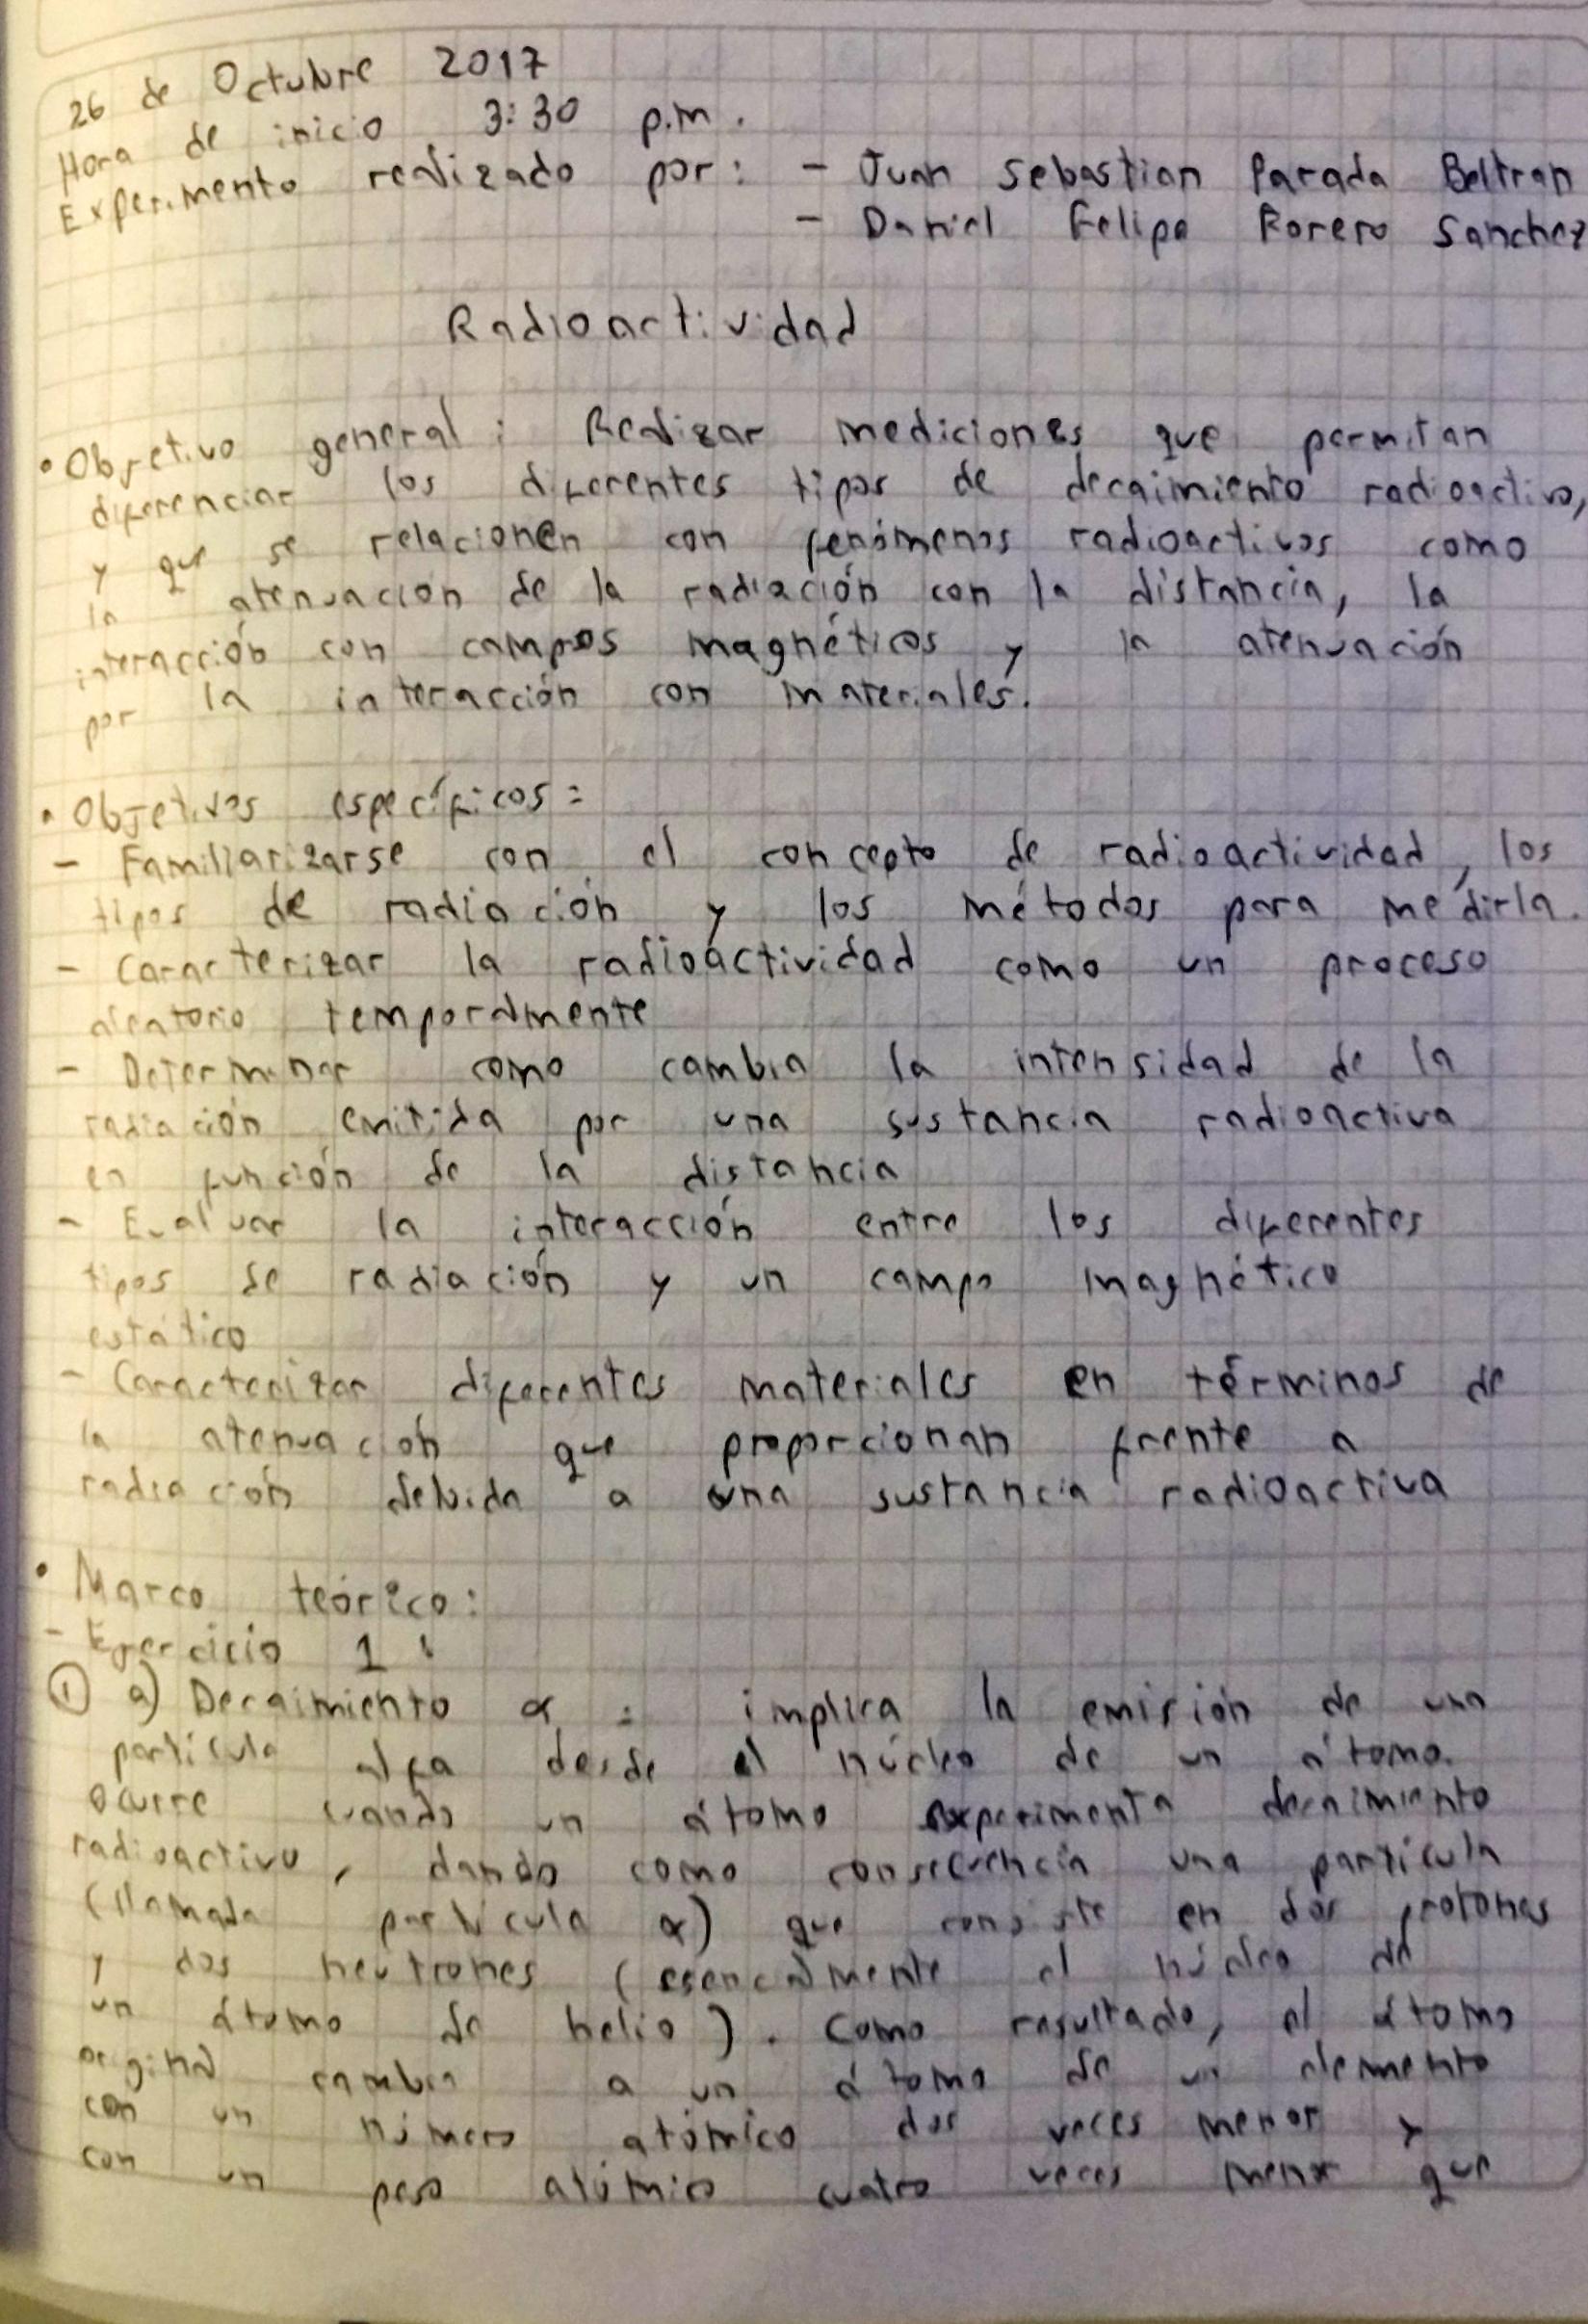 26 de Octubre 2017
Hora de inicio 3:30 p.m.
Experimento realizado por: - Juan Sebastian Parada Beltran
- Daniel Felipe Forero Sanchez
Radioactividad
• Objetivo general: Realizar mediciones que permitan
diferenciar los diferentes tipos de decaimiento radioactivo,
y que se relacionen con fenómenos radioactivos como
la atenuacion de la radiación con la distancia, la
interacción con campos magnéticos y la atenuación
por la interacción con materiales.
• Objetivos específicos:
- Familiarizarse con el concepto de radioactividad, los
tipos de radiación y los métodos para medirla.
- Caracterizar la radioactividad como un proceso
aleatorio temporalmente
- Determinar como cambia la intensidad de la
radiación emitida por una sustancia radioactiva
en función de la distancia
- Evaluar la interacción entre los diferentes
tipos de radiación y un campo magnético
estático
- Caracterizar diferentes materiales en términos de
la atenuación que proporcionan frente a
radiación debida a una sustancia radioactiva
• Marco teórico:
- Ejercicio 1:
① a) Decaimiento α : implica la emisión de una
partícula alfa desde el núcleo de un átomo.
Ocurre cuando un átomo experimenta decaimiento
radioactivo, dando como consecuencia una partícula
(llamada partícula α) que consiste en dos protones
y dos neutrones (esencialmente el núcleo de
un átomo de helio). Como resultado, el átomo
original cambia a un átomo de un elemento
con un número atómico dos veces menor y
con un peso atómico cuatro veces menor que